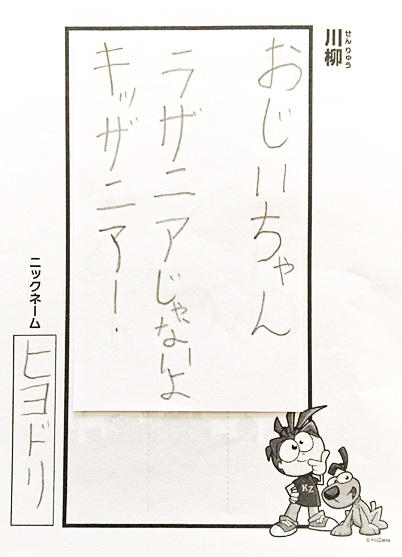 川柳
せんりゅう
おじいちゃん
ラザニアじゃないよ
キッザニアー!
ニックネーム
ヒヨドリ
KZ
© KidZania